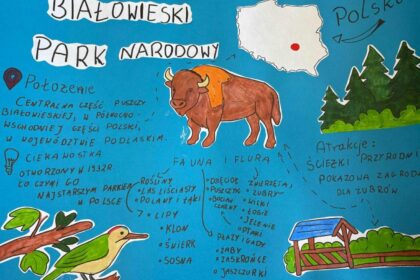 BIAŁOWIESKI
PARK NARODOWY
POLSKA
Położenie
CENTRALNA CZĘŚĆ PUSZCZY
BIAŁOWIESKIEJ, W PÓŁNOCNO-
WSCHODNIEJ CZĘŚCI POLSKI,
W WOJEWÓDZTWIE PODLASKIM.
CIEKAWOSTKA
OTWORZONY W 1932R.
TO CZYNI GO
NAJSTARSZYM PARKIEM
W POLSCE
FAUNA I FLORA
ROŚLINY
LAS LIŚCIASTY
POLANY I ŁĄKI
LIPY
KLON
ŚWIERK
SOSNA
DZIĘCIOŁ
BOCIAN
CZARNY
ZWIERZĘTA
ŻUBRY
WILKI
ŁOSIE
JELENIE
PTAKI
PŁAZY I GADY
ŻABY
ZASKROŃCE
JASZCZURKI
Atrakcje:
ŚCIEŻKI PRZYRODNI
POKAZOWA ZAGRODA
DLA ŻUBRÓW